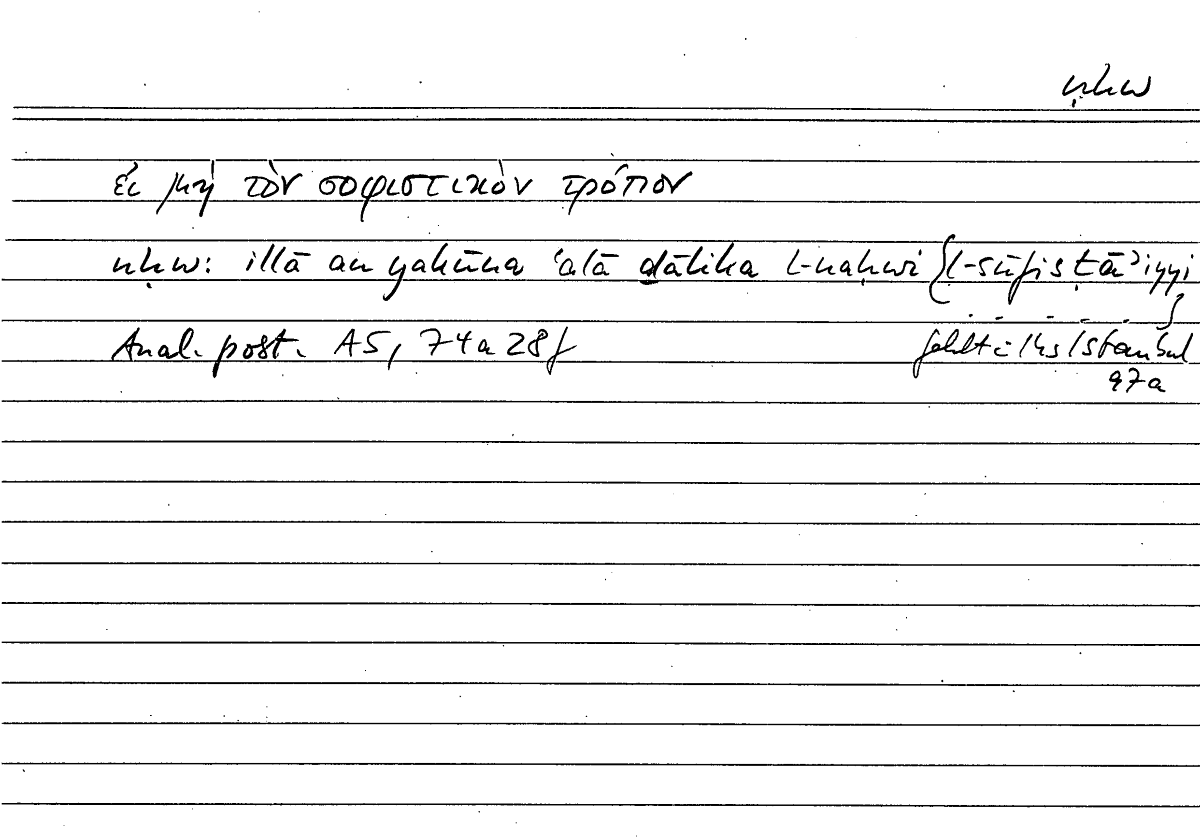 nḥw
εἰ μὴ τὸν σοφιστικὸν τρόπον
nḥw: illā an yakūna ʿalā ḏālika l-naḥwi {l-sūfisṭāʾiyyi}
Anal. post. A5, 74a28f
fehlt i Hs Istanbul
97a